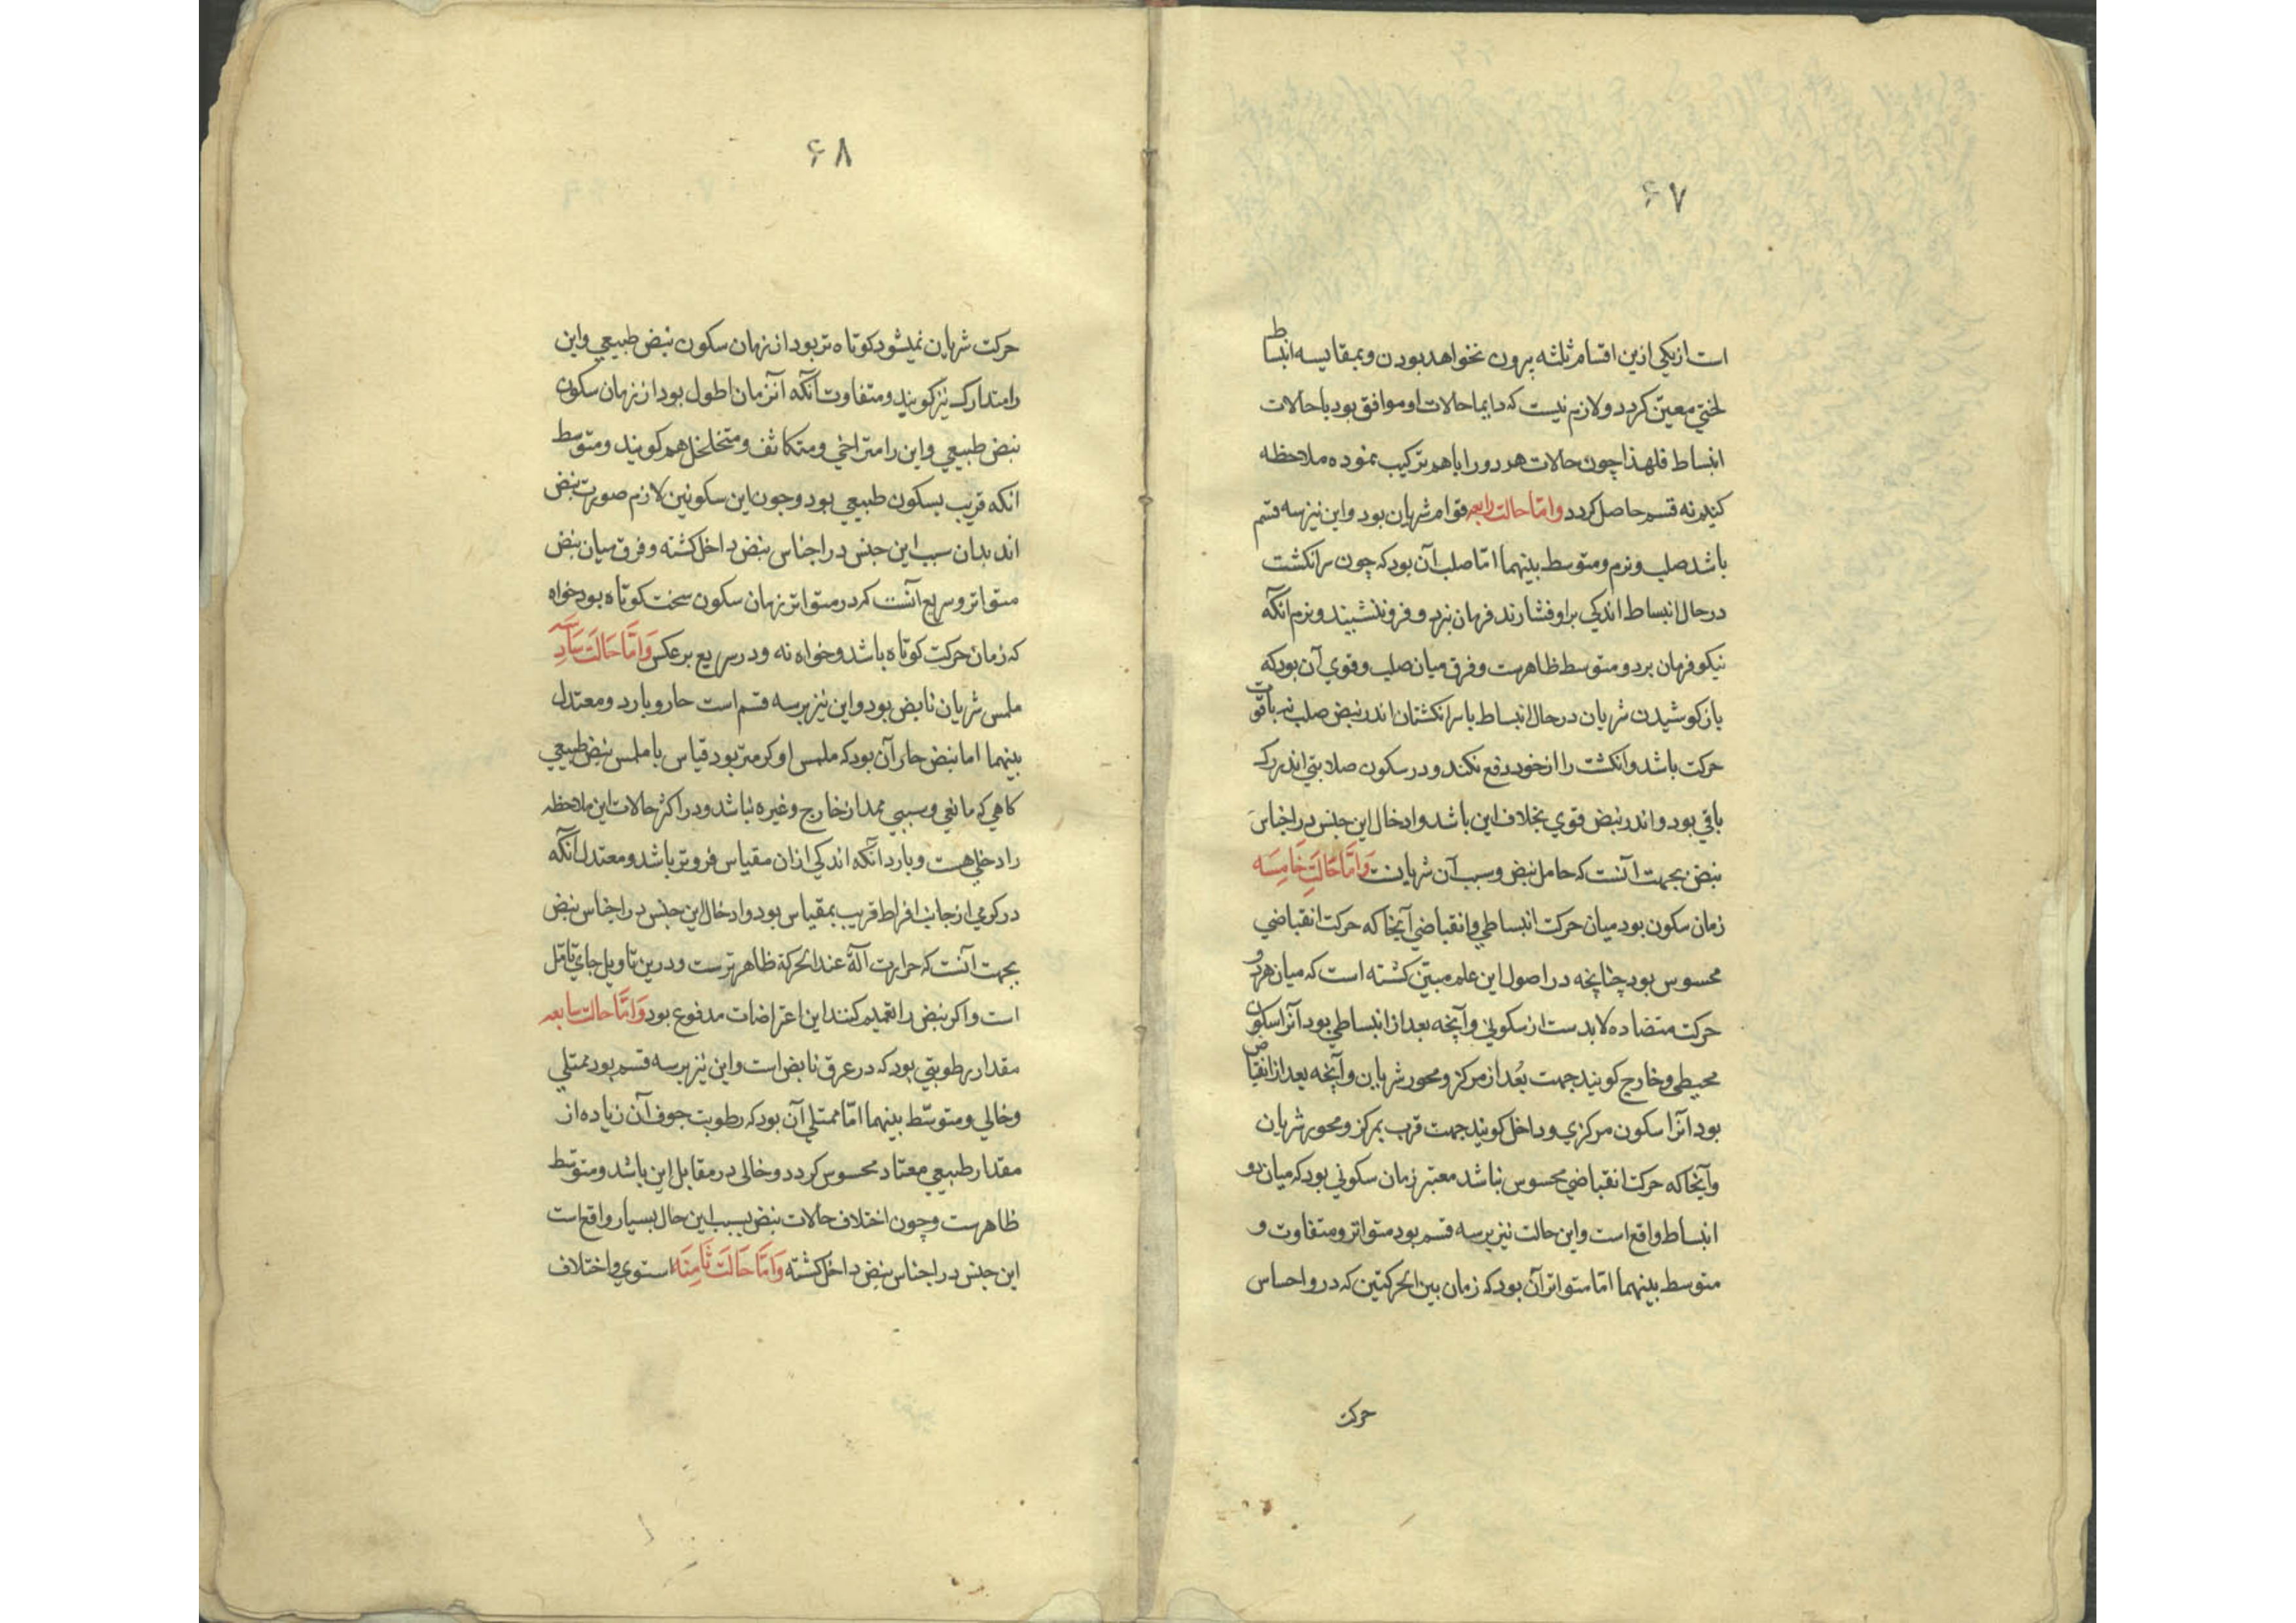 ۶۷
است از یکی ازین اقسام ثلثه بیرون نخواهد بودن و بمقایسه انبساط
لختی معین کردد و لازم نیست که دایما حالات او موافق بود با حالات
انبساط فلهذا چون حالات هر دو را باهم ترکیب نموده ملاحظه
کنیم نه قسم حاصل کردد وامّا حالت رابعه قوام شریان بود و این نیز سه قسم
باشد صلب و نرم و متوسط بینهما امّا صلب آن بود که چون سر انکشت
در حال انبساط اندکی برو فشارند فرمان نبرد و فرو ننشیند و نرم انکه
نیکو فرمان برد و متوسط ظاهرست و فرق میان صلب و قوی آن بود که
باز کوشیدن شریان در حال انبساط با سر انکشتان اندر نبض صلب نه باقوت
حرکت باشد و انکشت را از خود دفع نکند و در سکون صلابتی اندر رک
باقی بود و اندر نبض قوی بخلاف این باشد و ادخال این جنس در اجناس
نبض بجهت آنست که حامل نبض و سبب آن شریانست وَامَّا حَالَتِ خَامِسَه
زمان سکون بود میان حرکت انبساطی و انقباضی آنجا که حرکت انقباضی
محسوس بود چنانچه در اصول این علم مبیّن کشته است که میان هر دو
حرکت متضاده لابدست از سکونی و آنچه بعد از انبساطی بود آنرا سکون
محیطی و خارج کویند جهت بُعد از مرکز و محور شریان و آنچه بعد از انقباض
بود آنرا سکون مرکزی و داخل کویند جهت قرب بمرکز و محور شریان
و آنجا که حرکت انقباضی محسوس نباشد معتبر زمان سکونی بود که میان دو
انبساط واقع است و این حالت نیز بر سه قسم بود متواتر و متفاوت و
متوسط بینهما امّا متواتر آن بود که زمان بین الحرکتین که درو احساس
حرکت
۶۸
حرکت شریان نمیشود کوتاه تر بود از زمان سکون نبض طبیعی و این
را متدارک نیز کویند و متفاوت آنکه آن زمان اطول بود از زمان سکون
نبض طبیعی و این را متراخی و متکاثف و متخلخل هم کویند و متوسط
انکه قریب بسکون طبیعی بود و چون این سکونین لازم صورت نبض
اند بدان سبب این جنس در اجناس نبض داخل کشته و فرق میان نبض
متواتر و سریع آنست که در متواتر زمان سکون سخت کوتاه بود خواه
که زمان حرکت کوتاه باشد و خواه نه و در سریع برعکس وَامَّا حَالَت سَادِسَه
ملمس شریان نابض بود و این نیز بر سه قسم است حار و بارد و معتدل
بینهما اما نبض حار آن بود که ملمس او کرمتر بود قیاس با ملمس نبض طبیعی
کاهی که مانعی و سببی ممد از خارج و غیره نباشد و در اکثر حالات این ملاحظه
را دخلی هست و بارد آنکه اندکی از ان مقیاس فروتر باشد و معتدل آنکه
در کرمی از جانب افراط قریب بمقیاس بود و ادخال این جنس در اجناس نبض
بجهت آنست که حرارت آلة عند الحرکة ظاهرترست و درین تاویل جای تامّل
است و اکر نبض را تعمیم کنند این اعتراضات مدفوع بود وَامَّا حالت سابعه
مقدار رطوبتی بود که در عرق نابض است و این نیز بر سه قسم بود ممتلی
و خالی و متوسّط بینهما امّا ممتلی آن بود که رطوبت جوف آن زیاده از
مقدار طبیعی معتاد محسوس کردد و خالی در مقابل این باشد و متوسّط
ظاهرست و چون اختلاف حالات نبض بسبب این حال بسیار واقع است
این جنس در اجناس نبض داخل کشته وَامَّا حَالَت ثَامِنَه استوی و اختلاف